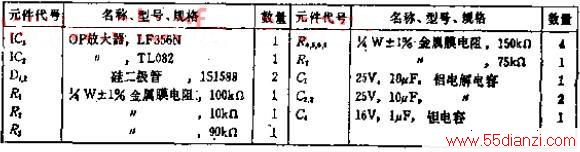 元件代号 名称、型号、规格 数量 元件代号 名称、型号、规格 数量
IC₁ OP放大器, LF356N 1 R₄,₅,₆,₈ ¼W±1% 金属膜电阻, 150kΩ 4
IC₂ 〃, TL082 1 R₇ 〃, 75kΩ 1
D₁,₂ 硅二极管, 1S1588 2 C₁ 25V, 10μF, 铝电解电容 1
R₁ ¼W±1%金属膜电阻, 100kΩ 1 C₂,₃ 25V, 10μF, 〃 2
R₂ 〃, 10kΩ 1 C₄ 16V, 1μF, 钽电容 1
R₃ 〃, 90kΩ 1
www.55dianzi.com